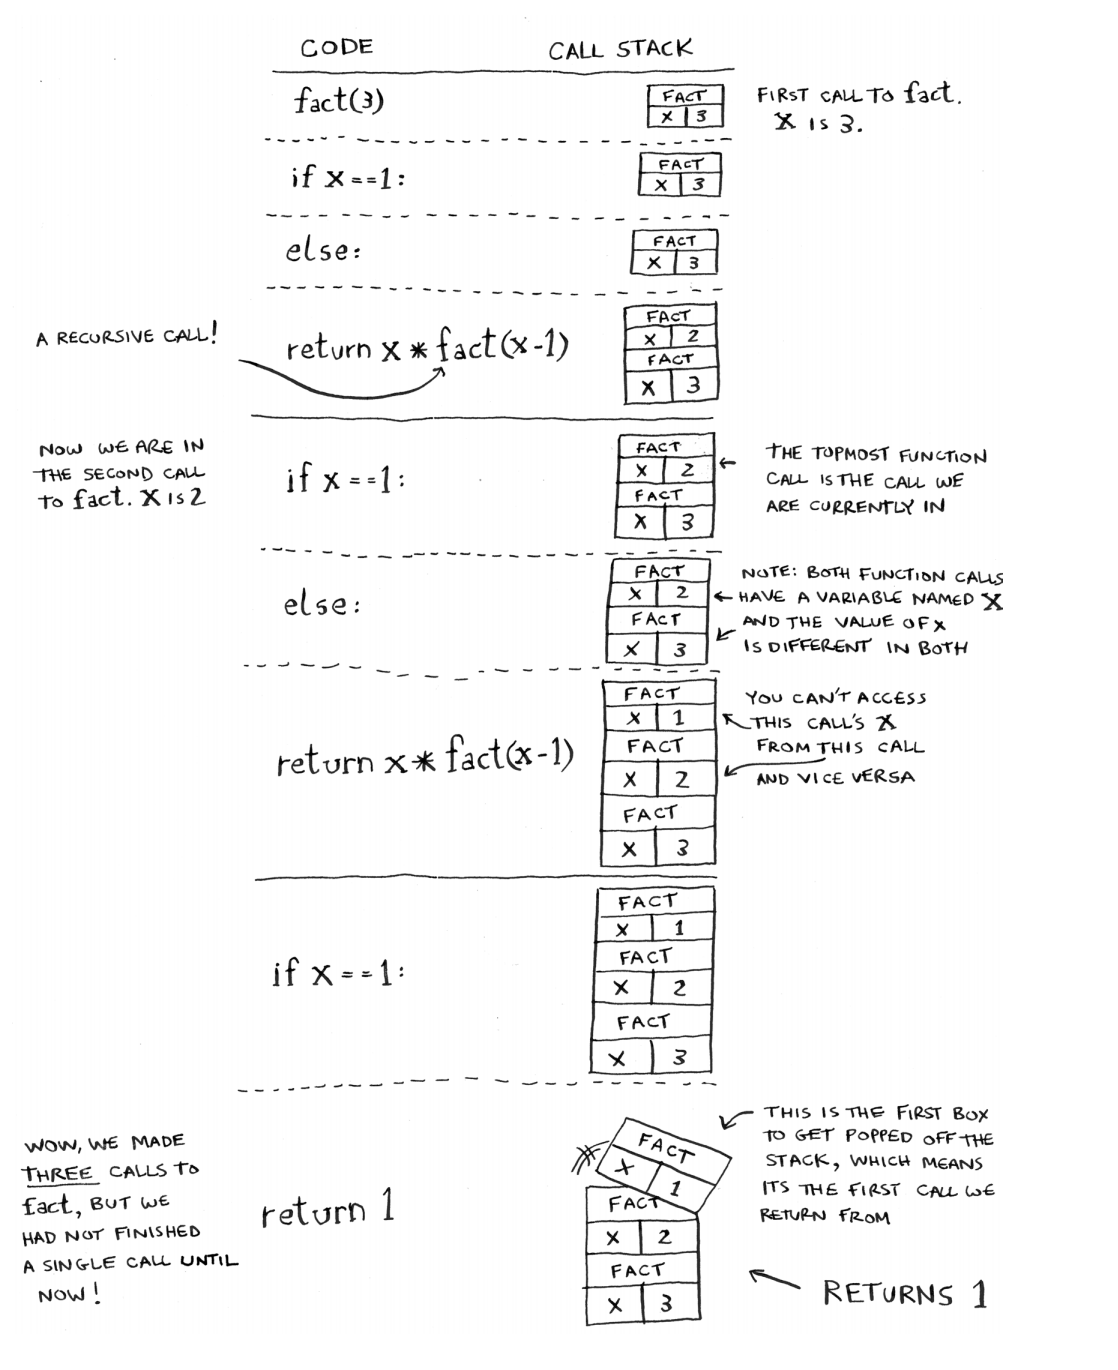 CODE CALL STACK
fact(3)
FACT
X 3
FIRST CALL TO fact.
X IS 3.
if x==1:
FACT
X 3
else:
FACT
X 3
A RECURSIVE CALL!
return x * fact(x-1)
FACT
X 2
FACT
X 3
NOW WE ARE IN
THE SECOND CALL
TO fact. X IS 2
if x==1:
FACT
X 2
FACT
X 3
THE TOPMOST FUNCTION
CALL IS THE CALL WE
ARE CURRENTLY IN
else:
FACT
X 2
FACT
X 3
NOTE: BOTH FUNCTION CALLS
HAVE A VARIABLE NAMED X
AND THE VALUE OF X
IS DIFFERENT IN BOTH
return x * fact(x-1)
FACT
X 1
FACT
X 2
FACT
X 3
YOU CAN'T ACCESS
THIS CALL'S X
FROM THIS CALL
AND VICE VERSA
if x==1:
FACT
X 1
FACT
X 2
FACT
X 3
WOW, WE MADE
THREE CALLS TO
fact, BUT WE
HAD NOT FINISHED
A SINGLE CALL UNTIL
NOW!
return 1
FACT
X 1
FACT
X 2
FACT
X 3
THIS IS THE FIRST BOX
TO GET POPPED OFF THE
STACK, WHICH MEANS
ITS THE FIRST CALL WE
RETURN FROM
RETURNS 1